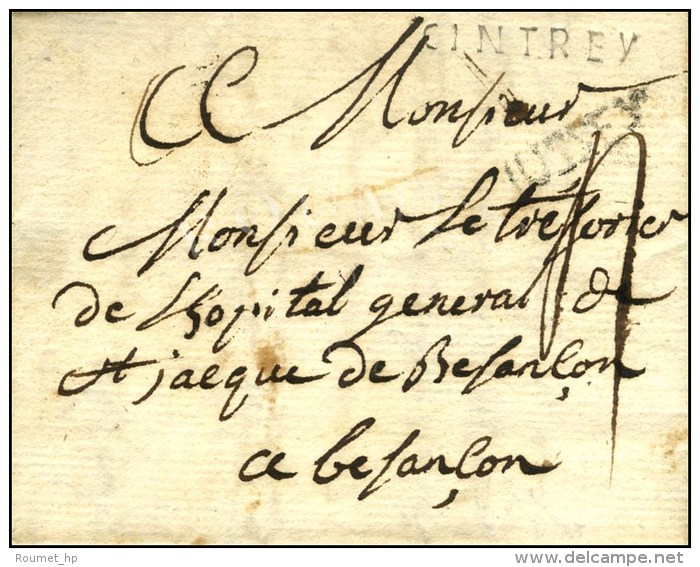 CINTREY
A Monsieur
JUSSEY
Monsieur le tresorier
de Lhopital general de
st jacque de Besançon
a besançon
Roumet_hp
delcampe.net